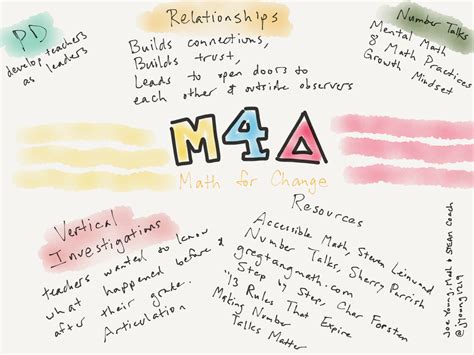 PD
develop teachers
as leaders
Relationships
Builds connections,
Builds trust,
Leads to open doors to
each other & outside observers
Number Talks
Mental Math
& Math Practices
Growth Mindset
M4Δ
Math for Change
Vertical
Investigations
teachers wanted to know
what happened before &
after their grade.
Articulation
Resources
Accessible Math, Steven Leinwand
Number Talks, Sherry Parrish
gregtangmath.com
Step by Step, Char Forsten
"13 Rules That Expire
Making Number
Talks Matter
Joe Young, Math & STEAM Coach
@jyoung1219